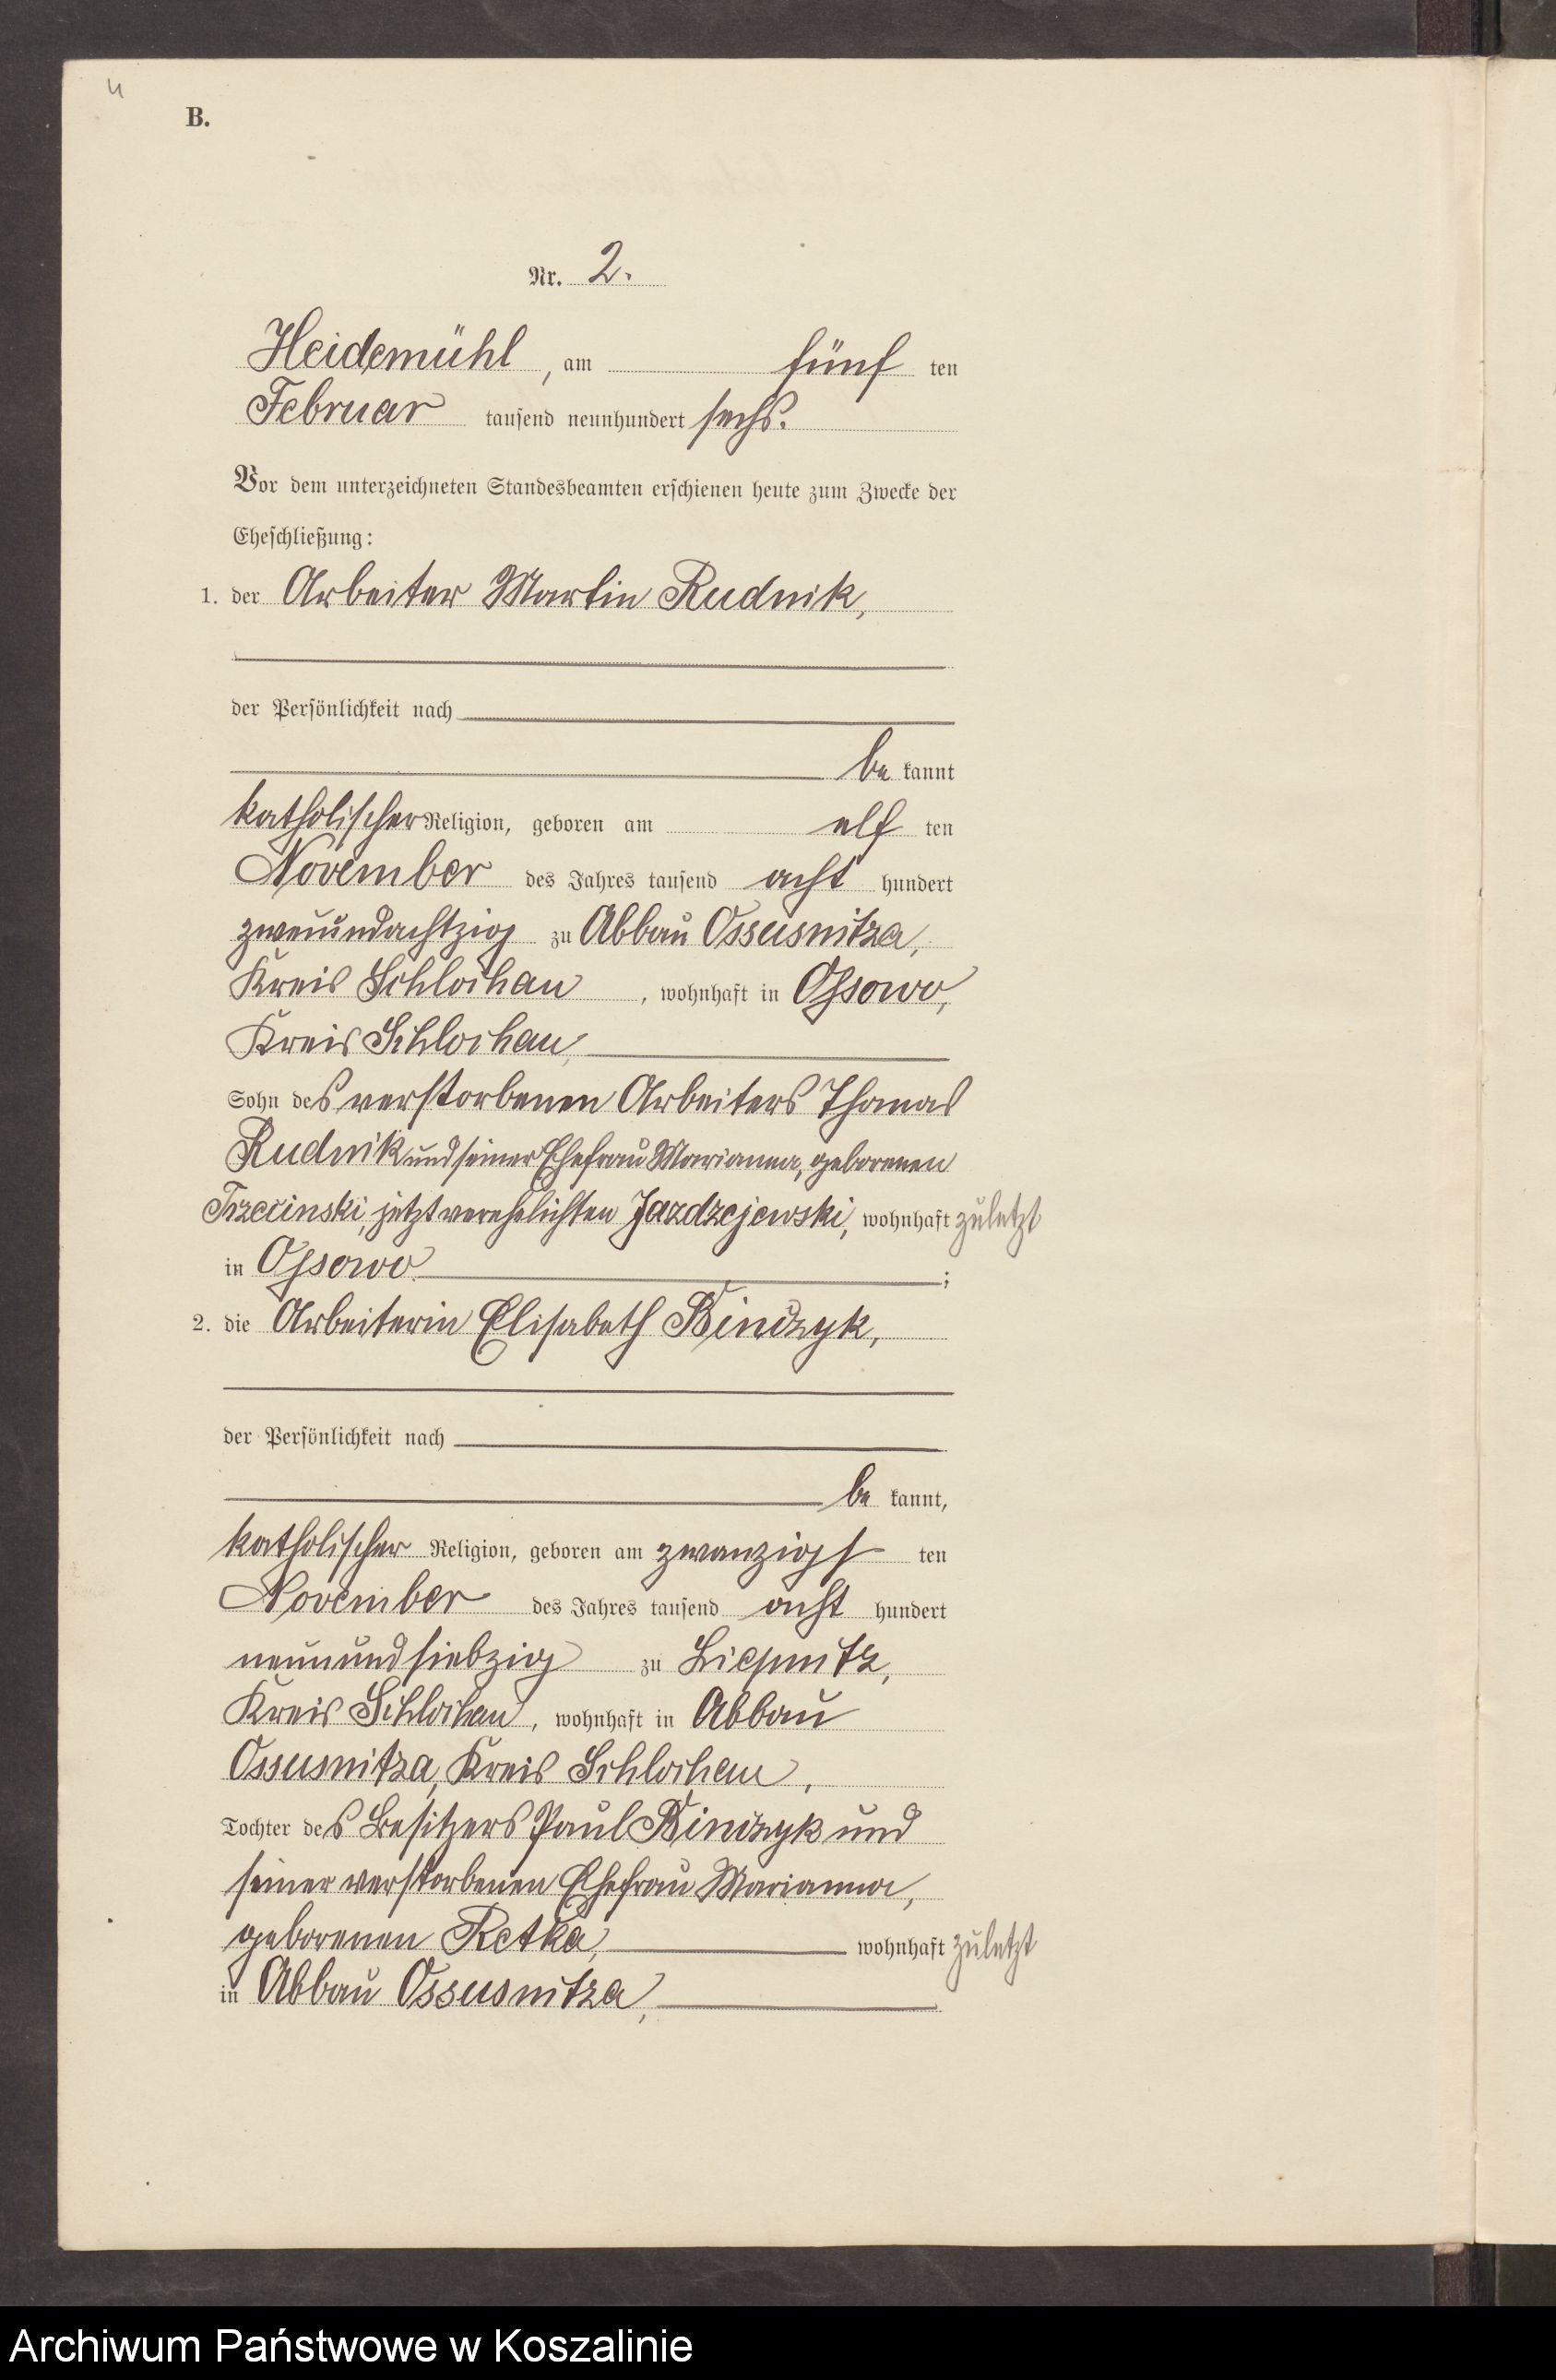 4
B.
Nr. 2.
Heidemühl, am fünf ten
Februar tausend neunhundert sechs.
Vor dem unterzeichneten Standesbeamten erschienen heute zum Zwecke der
Eheschließung:
1. der Arbeiter Martin Rudnik,
der Persönlichkeit nach
be kannt
katholischer Religion, geboren am elf ten
November des Jahres tausend acht hundert
zweiundachtzig zu Abbau Ossusnitza,
Kreis Schlochau, wohnhaft in Ossowo,
Kreis Schlochau,
Sohn des verstorbenen Arbeiters Thomas
Rudnik und seiner Ehefrau Marianna, geborenen
Trzecinski, jetzt verehelichten Jazdzejewski, wohnhaft zuletzt
in Ossowo ;
2. die Arbeiterin Elisabeth Binczyk,
der Persönlichkeit nach
be kannt,
katholischer Religion, geboren am zwanzigs ten
November des Jahres tausend acht hundert
neunundsiebzig zu Liepnitz,
Kreis Schlochau, wohnhaft in Abbau
Ossusnitza, Kreis Schlochau,
Tochter des Besitzers Paul Binczyk und
seiner verstorbenen Ehefrau Marianna,
geborenen Retka, wohnhaft zuletzt
in Abbau Ossusnitza,
Archiwum Państwowe w Koszalinie